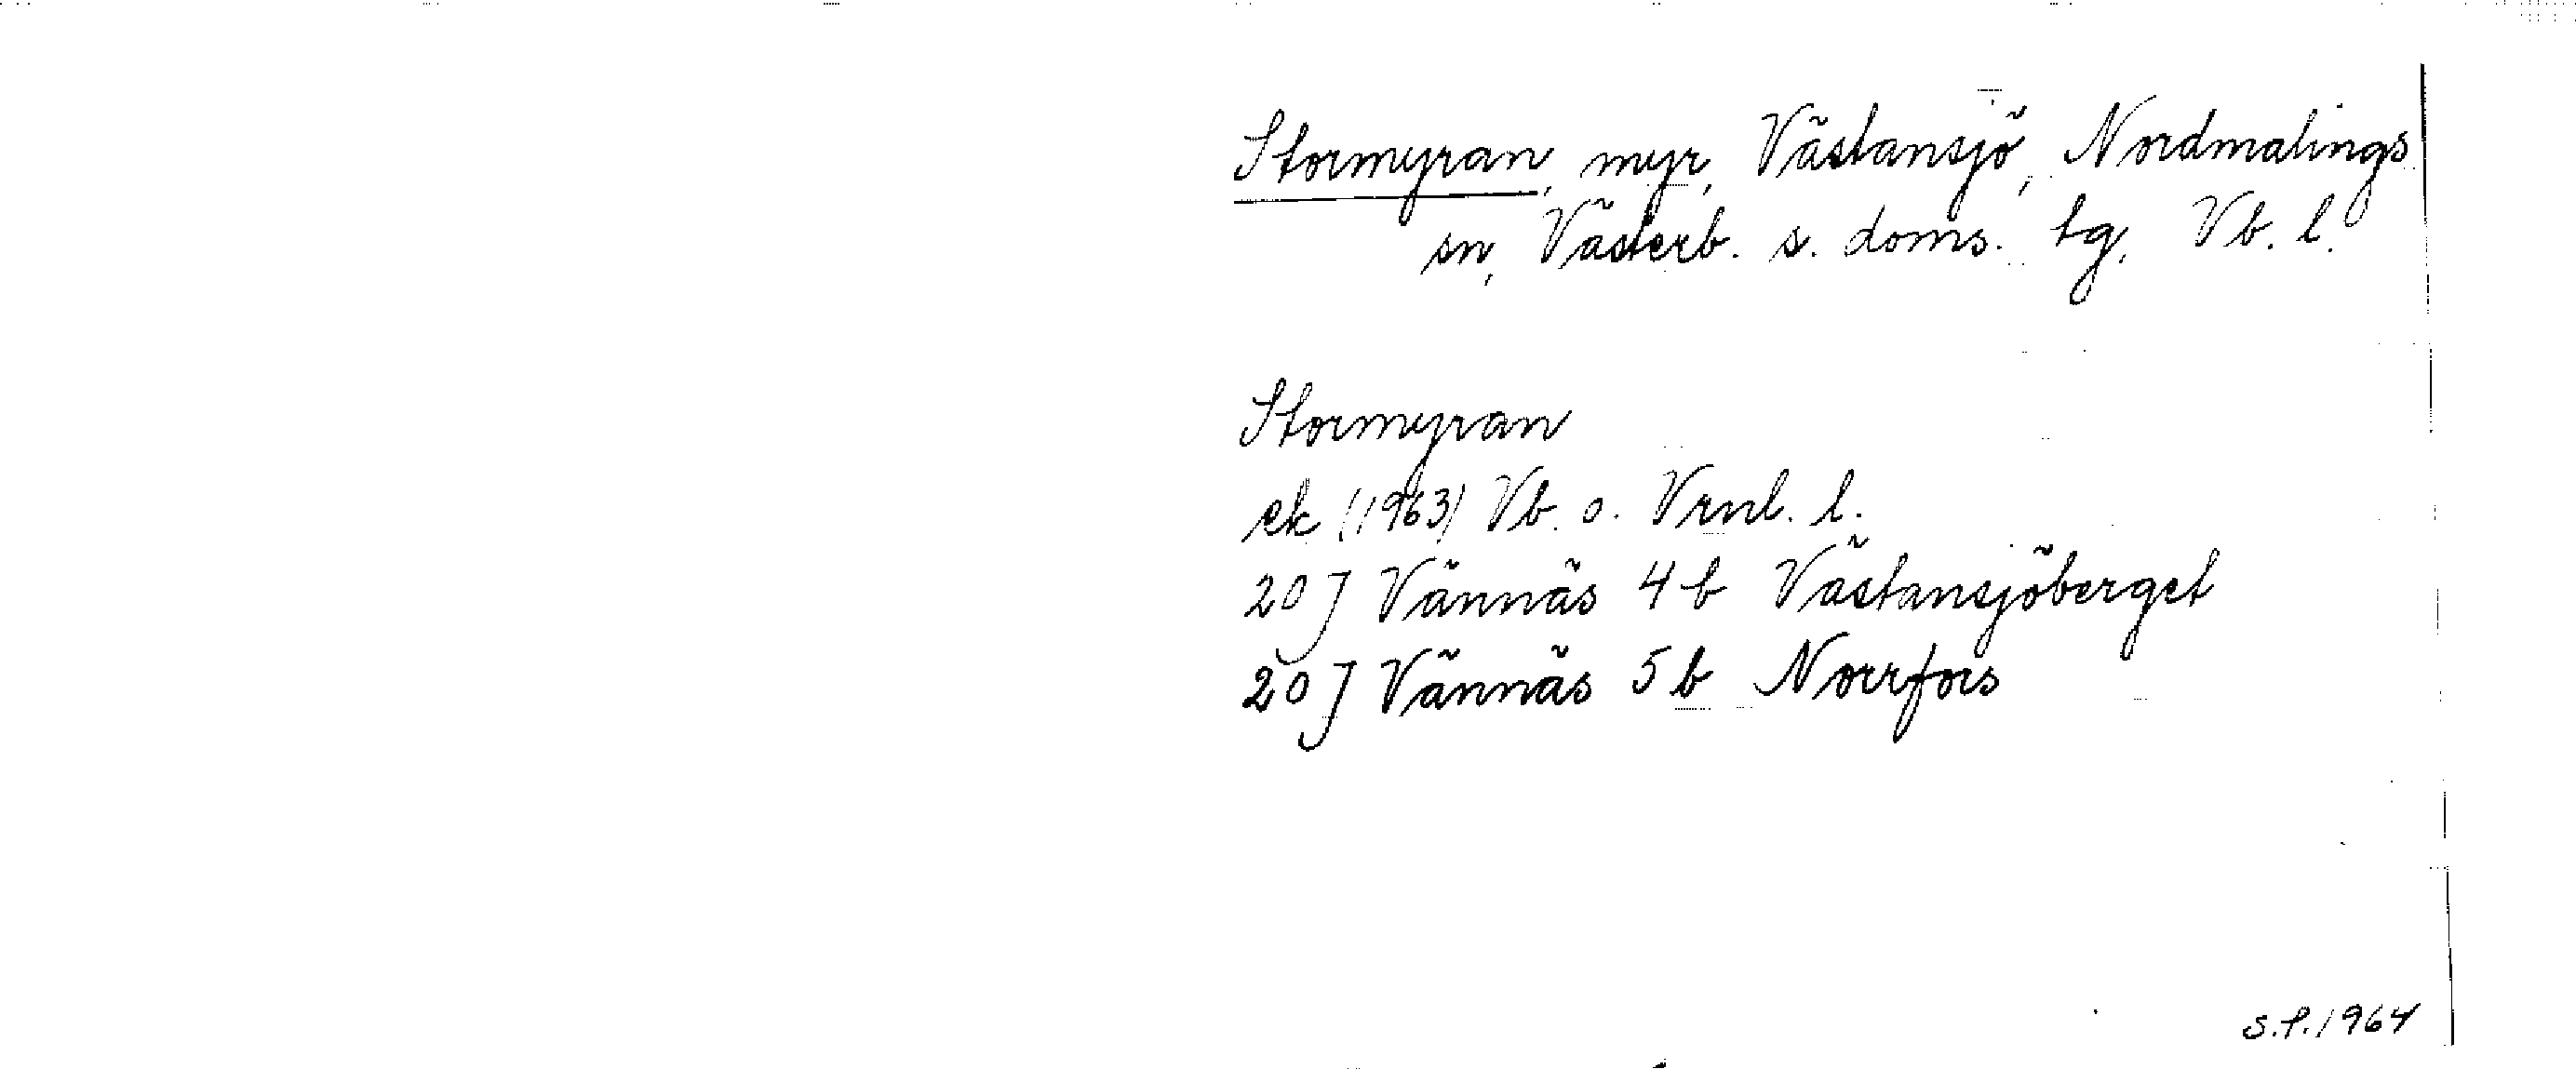 Stormyran, myr, Västansjö, Nordmalings
sn, Västerb. s. doms. tg, Vb. l.
Stormyran
ek (1963) Vb. o. Vrnl. l.
20 J Vännäs 4 b Västansjöberget
20 J Vännäs 5 b Norrfors
S.P. 1964